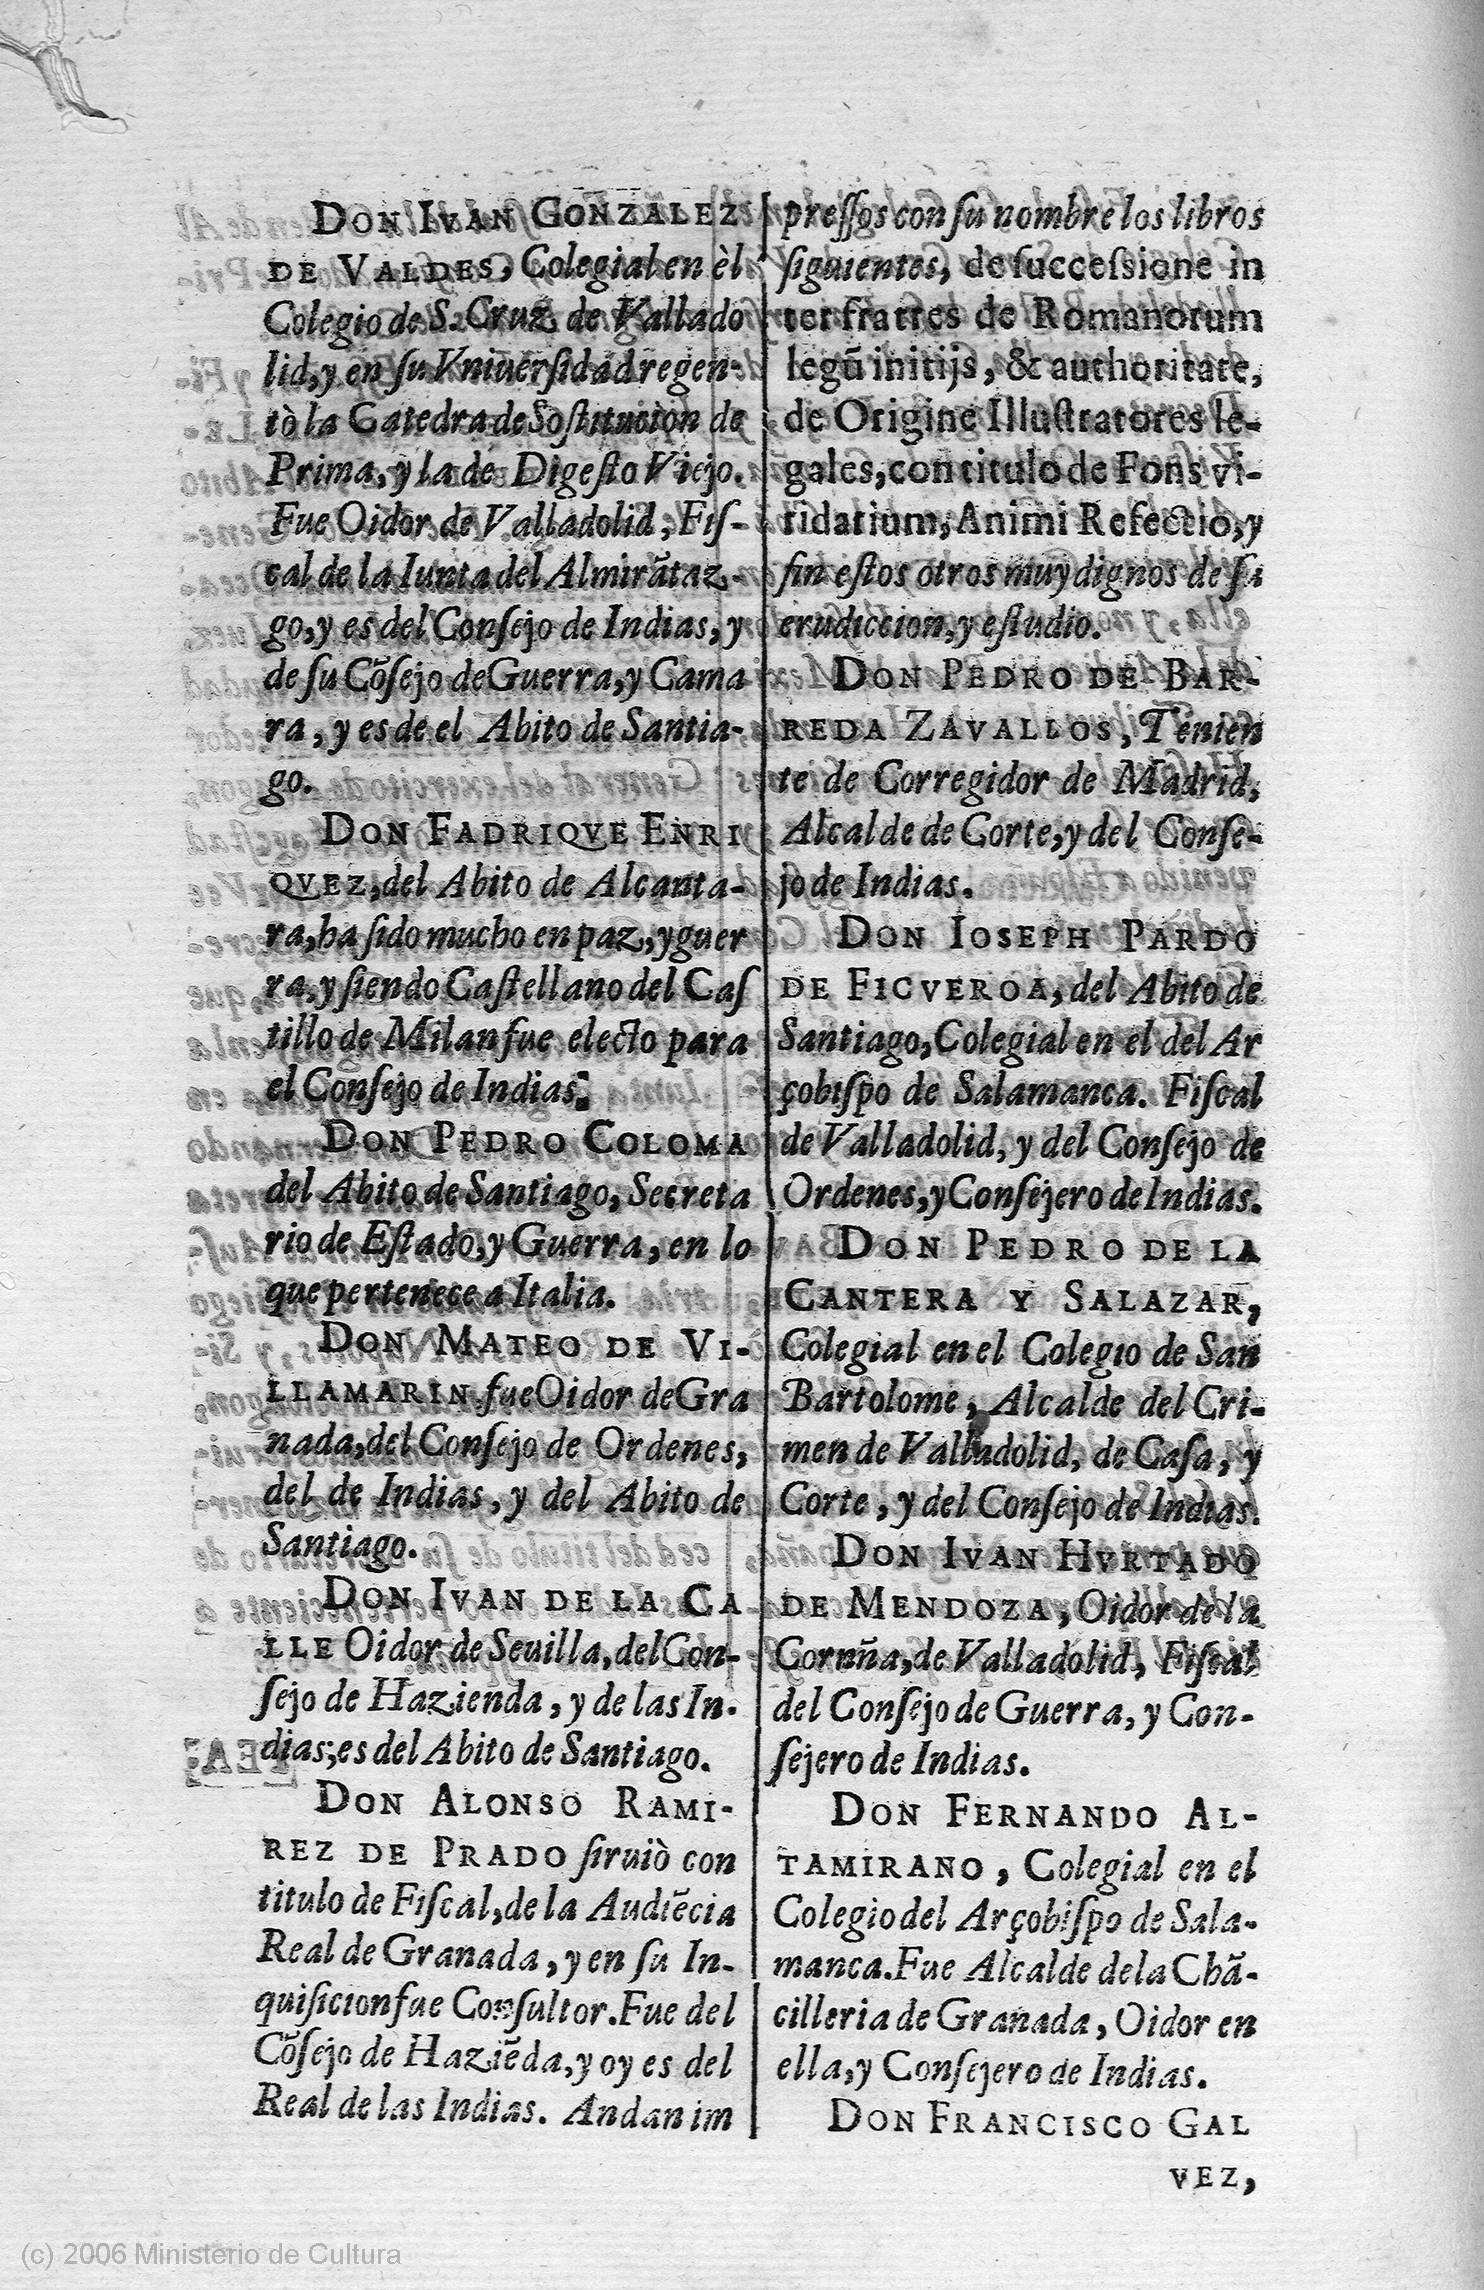 DON IVAN GONZALEZ
DE VALDES, Colegial en èl
Colegio de S. Cruz de Vallado
lid, y en su Vniuersidad regen-
tò la Catedra de Sostitucion de
Prima, y la de Digesto Viejo.
Fue Oidor de Valladolid, Fis-
cal de la Iunta del Almirãtaz-
go, y es del Consejo de Indias, y
de su Cõsejo de Guerra, y Cama
ra, y es de el Abito de Santia-
go.
DON FADRIQVE ENRI
QVEZ, del Abito de Alcanta-
ra, ha sido mucho en paz, y guer
ra, y siendo Castellano del Cas
tillo de Milan fue electo para
el Consejo de Indias.
DON PEDRO COLOMA
del Abito de Santiago, Secreta
rio de Estado, y Guerra, en lo
que pertenece a Italia.
DON MATEO DE VI-
LLAMARIN fue Oidor de Gra
nada, del Consejo de Ordenes,
del de Indias, y del Abito de
Santiago.
DON IVAN DE LA CA
LLE Oidor de Seuilla, del Con-
sejo de Hazienda, y de las In-
dias; es del Abito de Santiago.
DON ALONSO RAMI-
REZ DE PRADO siruiò con
titulo de Fiscal, de la Audiẽcia
Real de Granada, y en su In-
quisicion fue Consultor. Fue del
Cõsejo de Haziẽda, y oy es del
Real de las Indias. Andan im
pressos con su nombre los libros
siguientes, de successione in
ter fratres de Romanorum
legũ initijs, & authoritate,
de Origine Illustratores le-
gales, con titulo de Fons vi-
ridarium, Animi Refectio, y
sin estos otros muy dignos de su
erudiccion, y estudio.
DON PEDRO DE BAR-
REDA ZAVALLOS, Tenien
te de Corregidor de Madrid,
Alcalde de Corte, y del Conse-
jo de Indias.
DON IOSEPH PARDO
DE FIGVEROA, del Abito de
Santiago, Colegial en el del Ar
çobispo de Salamanca. Fiscal
de Valladolid, y del Consejo de
Ordenes, y Consejero de Indias.
DON PEDRO DE LA
CANTERA Y SALAZAR,
Colegial en el Colegio de San
Bartolome, Alcalde del Cri-
men de Valladolid, de Casa, y
Corte, y del Consejo de Indias.
DON IVAN HVRTADO
DE MENDOZA, Oidor de la
Coruña, de Valladolid, Fiscal
del Consejo de Guerra, y Con-
sejero de Indias.
DON FERNANDO AL-
TAMIRANO, Colegial en el
Colegio del Arçobispo de Sala-
manca. Fue Alcalde de la Chã-
cilleria de Granada, Oidor en
ella, y Consejero de Indias.
DON FRANCISCO GAL
VEZ,
(c) 2006 Ministerio de Cultura